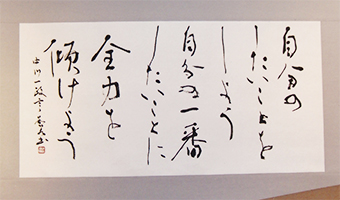 自分の
したいことを
しよう
自分の一番
したいことに
全力を
傾けよう